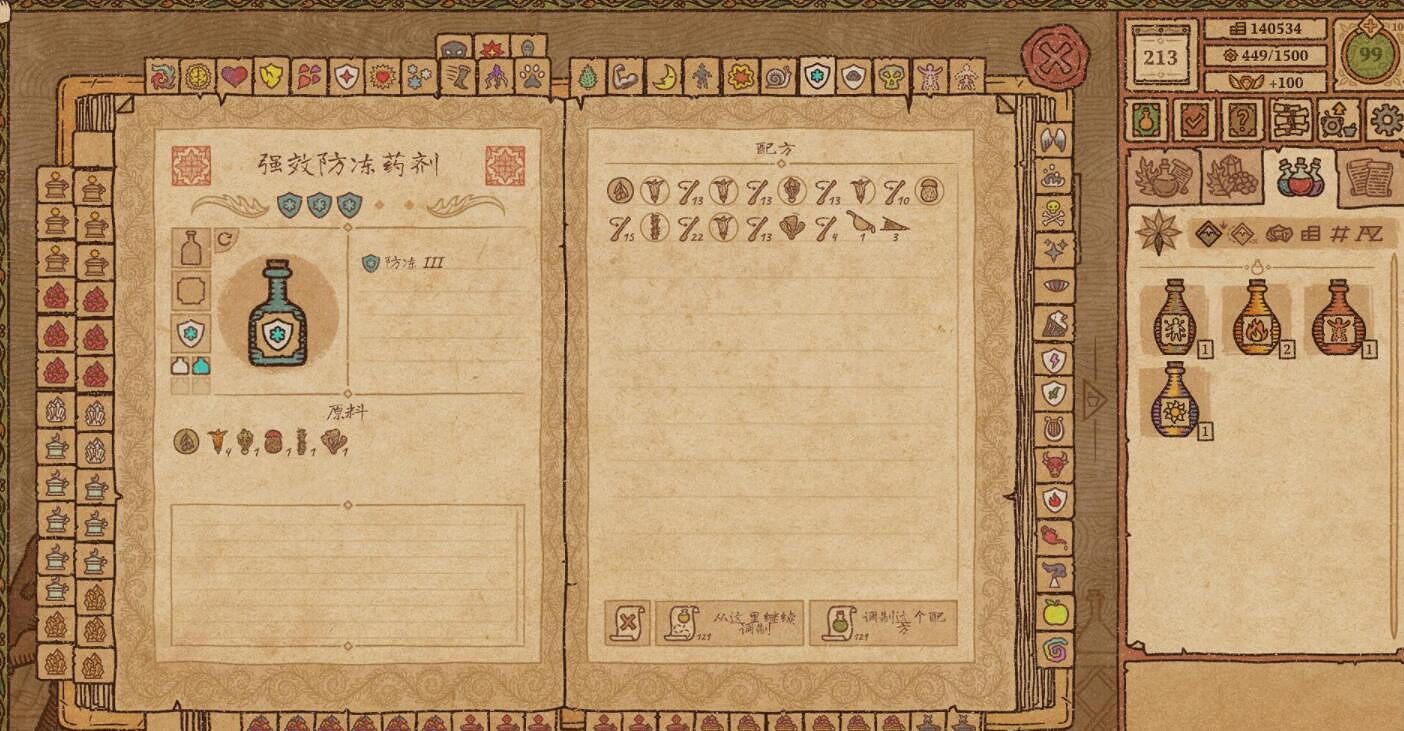 140534
213
449/1500
99
+100
强效防冻药剂
配方
13
13
13
10
15
22
13
4
1
3
防冻 III
原料
4
1
1
1
1
从这里继续
调制
121
调制这个配
方
121
1
2
1
1